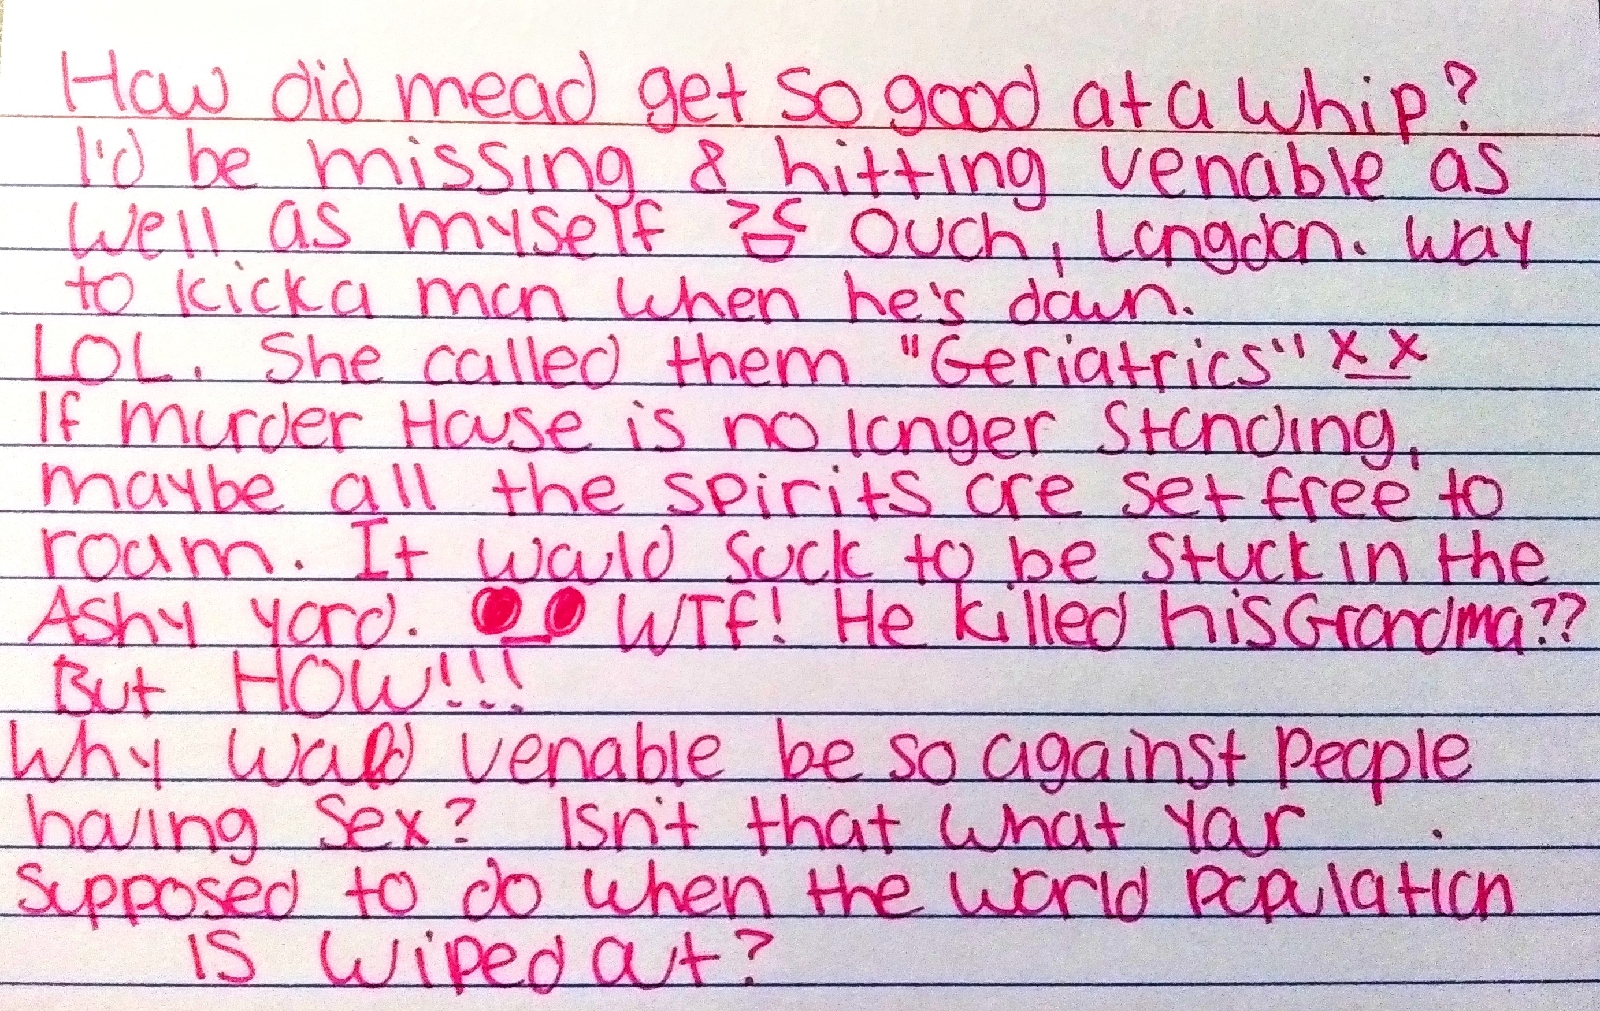 How did mead get so good at a whip?
I'd be missing & hitting venable as
well as myself >.< Ouch, Langdon. Way
to kick a man when he's down.
LOL. She called them "Geriatrics" x_x
If Murder House is no longer standing,
maybe all the spirits are set free to
roam. It would suck to be stuck in the
Ashy yard. O_O WTF! He killed his Grandma??
But HOW!!!
Why would venable be so against people
having sex? Isn't that what your
supposed to do when the world population
is wiped out?